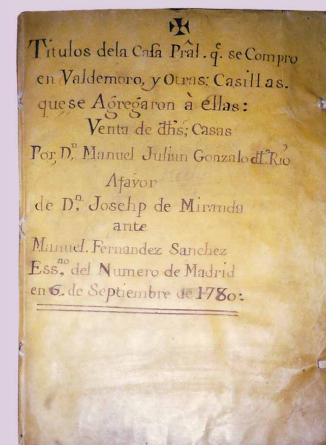 ✠
Titulos dela Casa Prāl. q̃. se Compro
en Valdemoro, y Otras; Casillas.
que se Agregaron à éllas:
Venta de dh̃s; Casas
Por, D.ⁿ Manuel Julian Gonzalo d.l Rio
Afavor
de D.ⁿ Josehp de Miranda
ante
Manuel. Fernandez Sanchez
Ess.ⁿᵒ del Numero de Madrid
en 6. de Septiembre de 1780: